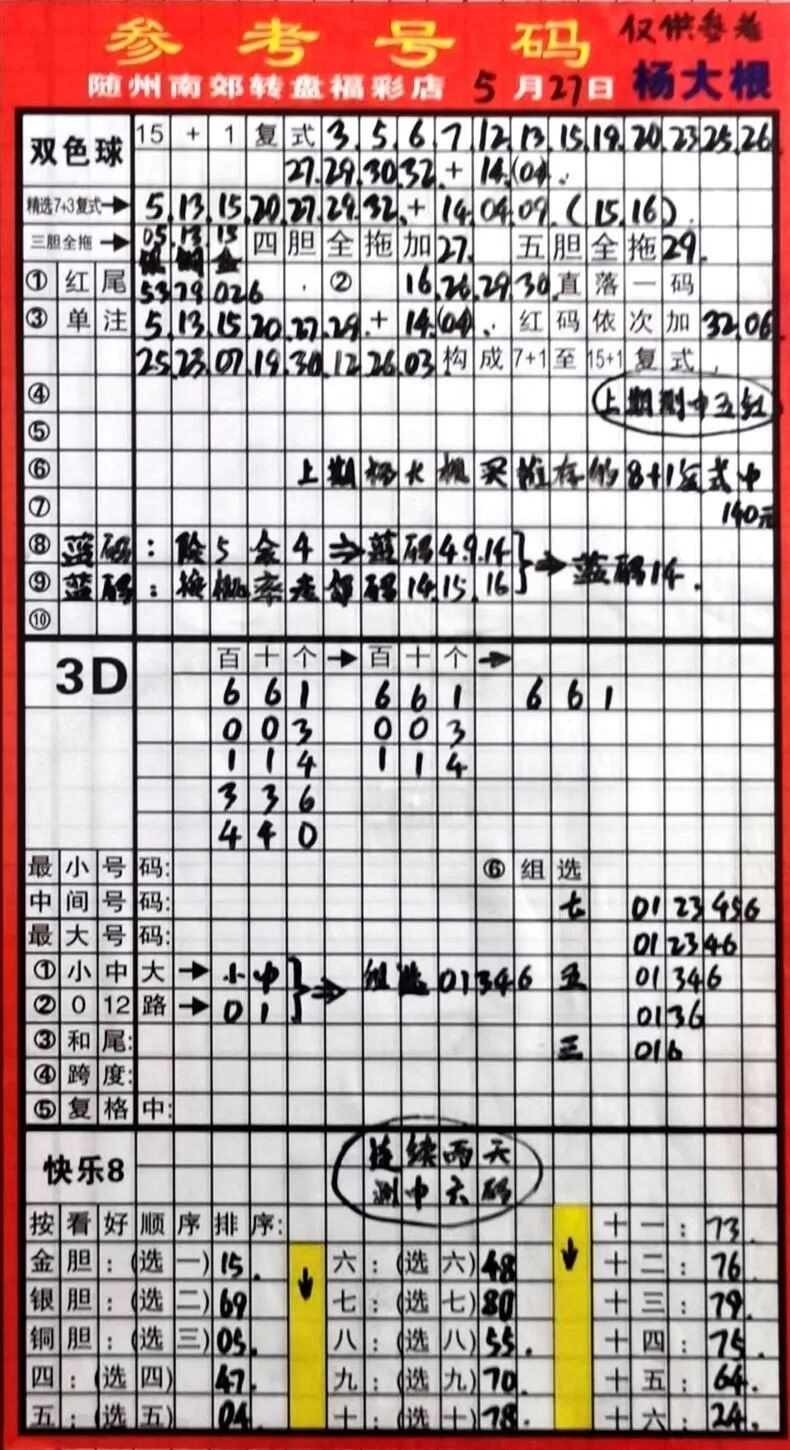 参考号码 仅供参考
随州南郊转盘福彩店 5月27日 杨大根
双色球 15+1复式 3.5.6.7.12.13.15.19.20.23.25.26
27.29.30.32.+14.(04).
精选7+3复式→ 5.13.15.20.27.29.32.+14.04.09.(15.16).
三胆全拖→ 05.13.15 四胆全拖加27. 五胆全拖29.
银铜金
①红尾 5379026 . ② 16.26.29.30.直落一码
③单注 5.13.15.20.27.29.+14.(04). 红码依次加32.06
25.23.07.19.30.12.26.03.构成7+1至15+1复式.
④ 上期测中五红
⑤
⑥ 上期杨大根买推荐的8+1复式中
⑦ 140元
⑧蓝码:除5余4⇒蓝码4.9.14
⇒蓝码14.
⑨蓝码:按概率走邻码14.15.16
⑩
3D 百十个→百十个→
661 661 661
003 003
114 114
336
440
最小号码: ⑥组选
中间号码: 七 0123456
最大号码: 012346
①小中大→小中 ⇒组选01346 五 01346
②012路→01 0136
③和尾: 三 016
④跨度:
⑤复格中:
快乐8 连续两天
测中六码
按看好顺序排序: 十一:73.
金胆:(选一)15. ↓ 六:(选六)48 ↓ 十二:76.
银胆:(选二)69 七:(选七)80 十三:79.
铜胆:(选三)05. 八:(选八)55. 十四:75.
四:(选四)47. 九:(选九)70 十五:64.
五:(选五)04. 十:(选十)78. 十六:24.